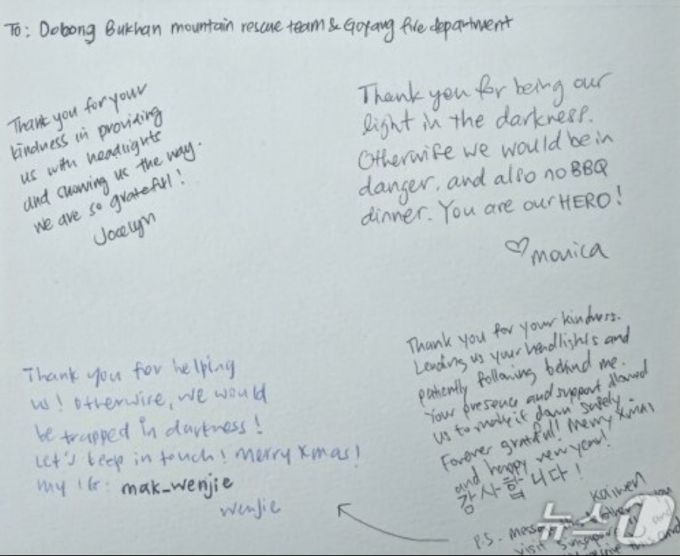 To: Dobong Bukhan mountain rescue team & Goyang fire department
Thank you for your
kindness in providing
us with headlights
and showing us the way.
we are so grateful!
Jocelyn
Thank you for being our
light in the darkness.
Otherwife we would be in
danger. and also no BBQ
dinner. You are our HERO!
♡ monica
Thank you for helping
us! Otherwise, we would
be trapped in darkness!
Let's keep in touch! merry Xmas!
my IG: mak_wenjie
wenjie
Thank you for your kindness.
Lending us your headlights and
patiently following behind me.
Your presence and support allowed
us to make it down safely.
Forever grateful! Merry Xmas
and happy new year!
감사합니다!
Kaiwen
P.S. message
visit Singapore
뉴스1